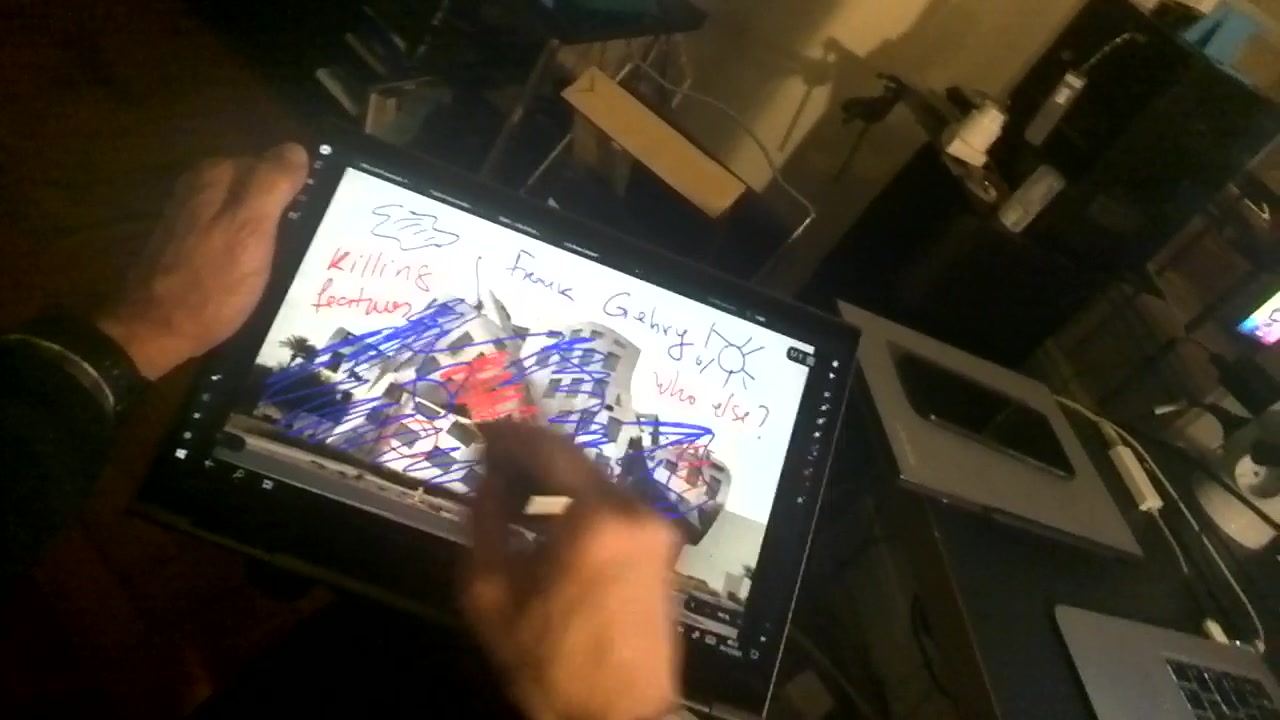 Killing
features
Frank Gehry
b/
who else?
1/1